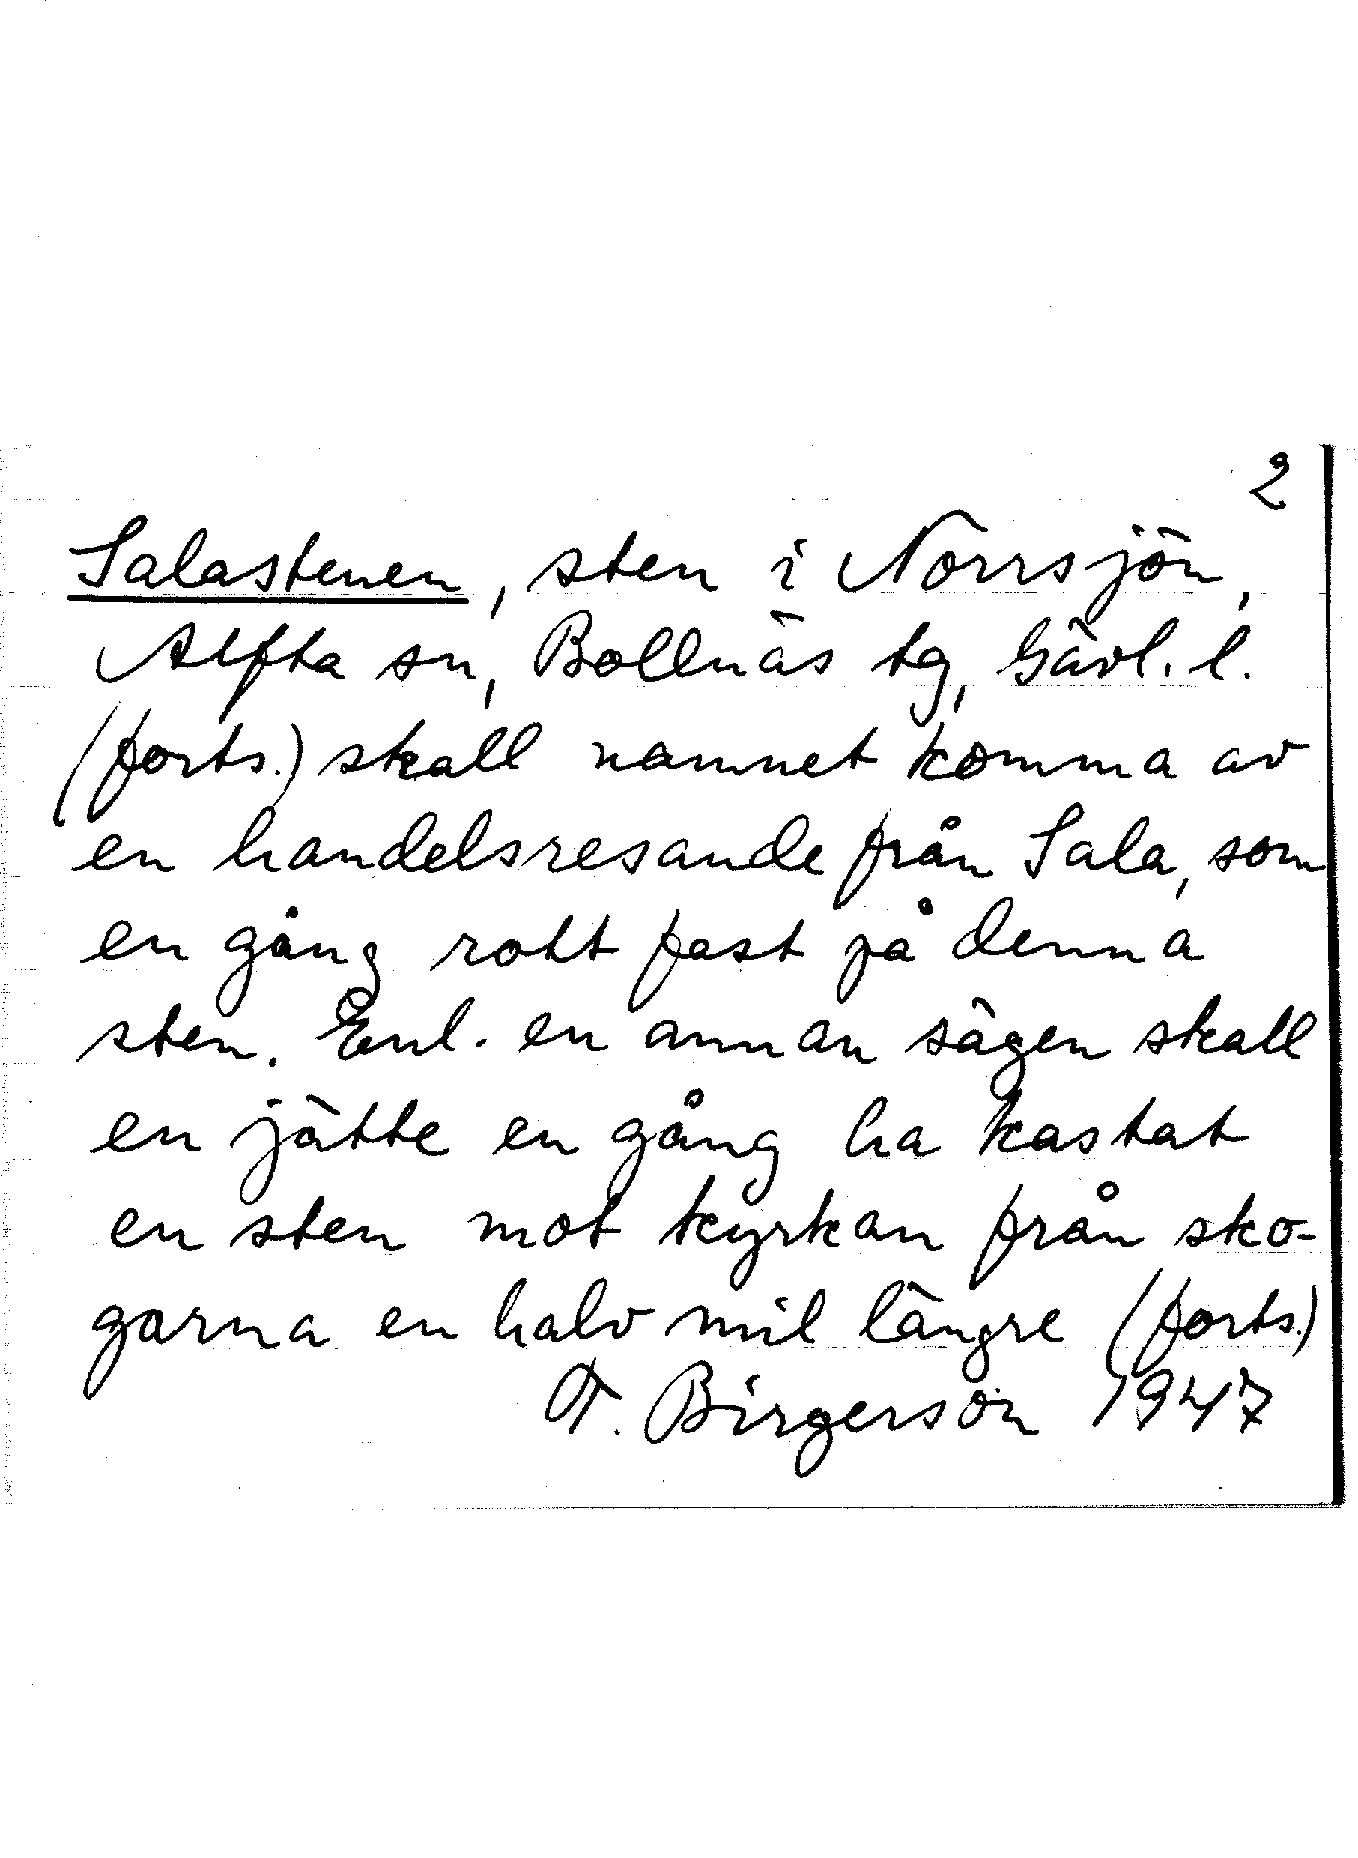 2
Salastenen, sten i Norrsjön,
Alfta sn, Bollnäs tg, Gävl. l.
(forts.) skall namnet komma av
en handelsresande från Sala, som
en gång rott fast på denna
sten. Enl. en annan sägen skall
en jätte en gång ha kastat
en sten mot kyrkan från sko-
garna en halv mil längre (forts.)
T. Birgerson 1947